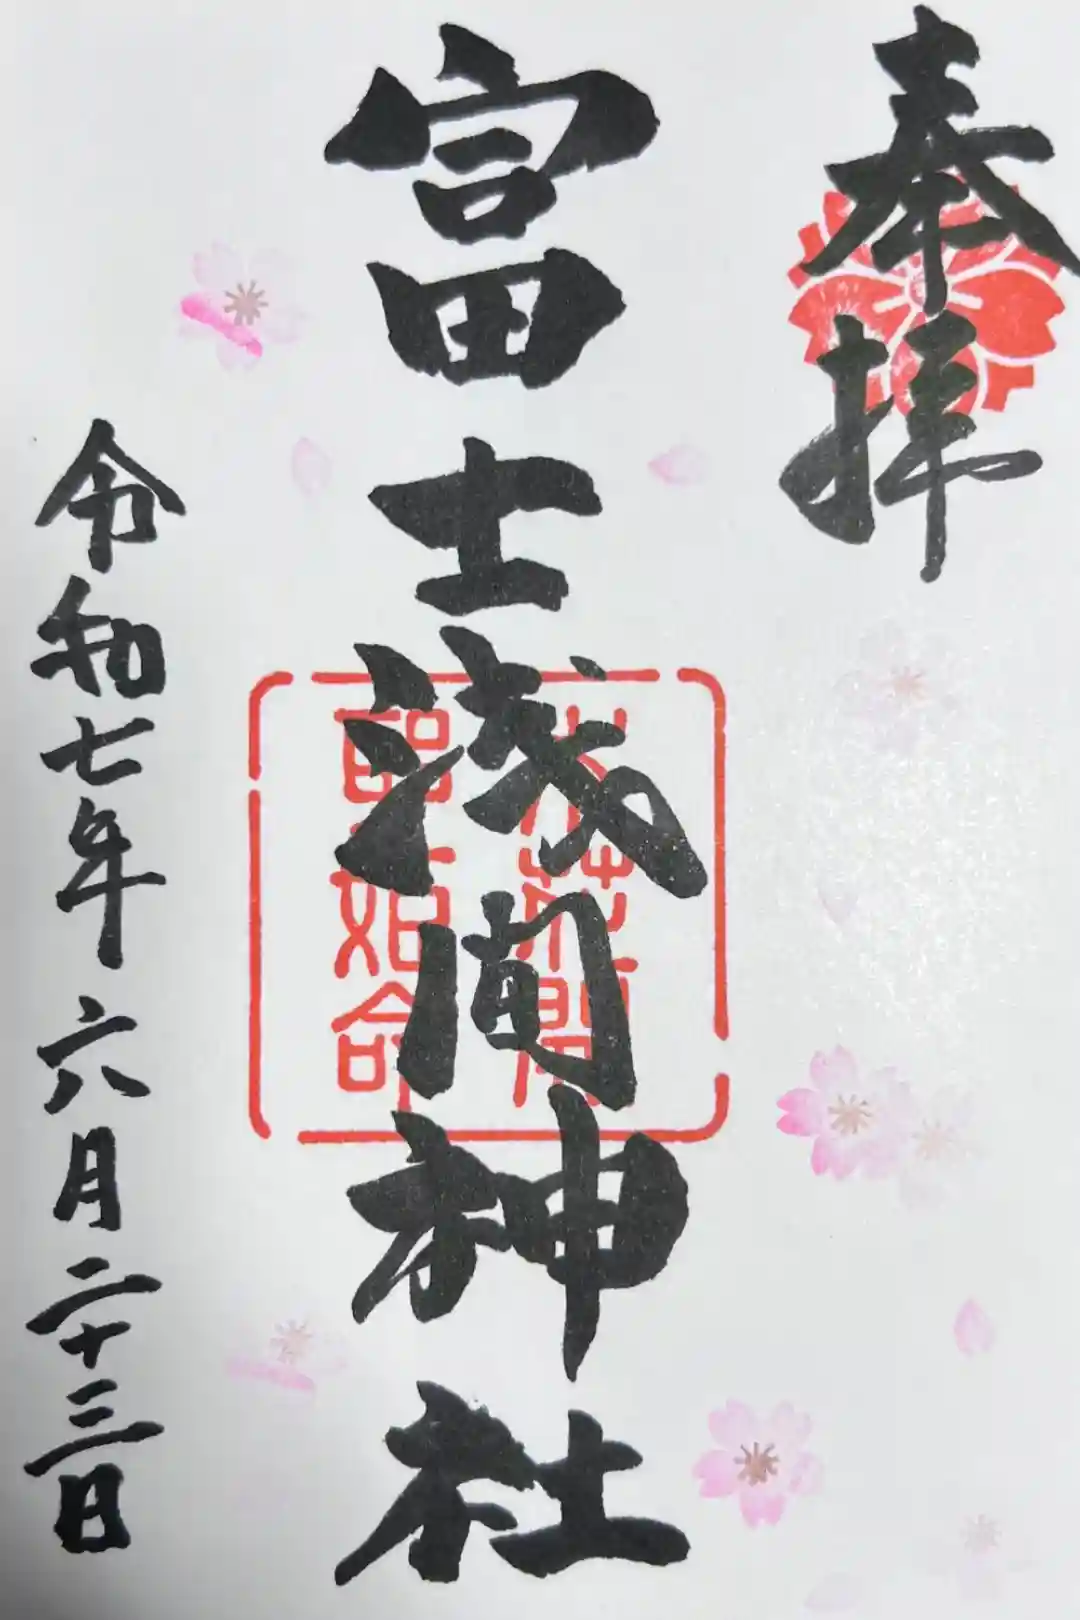 奉拝
富士浅間神社
木花開
姫命
令和七年六月二十三日